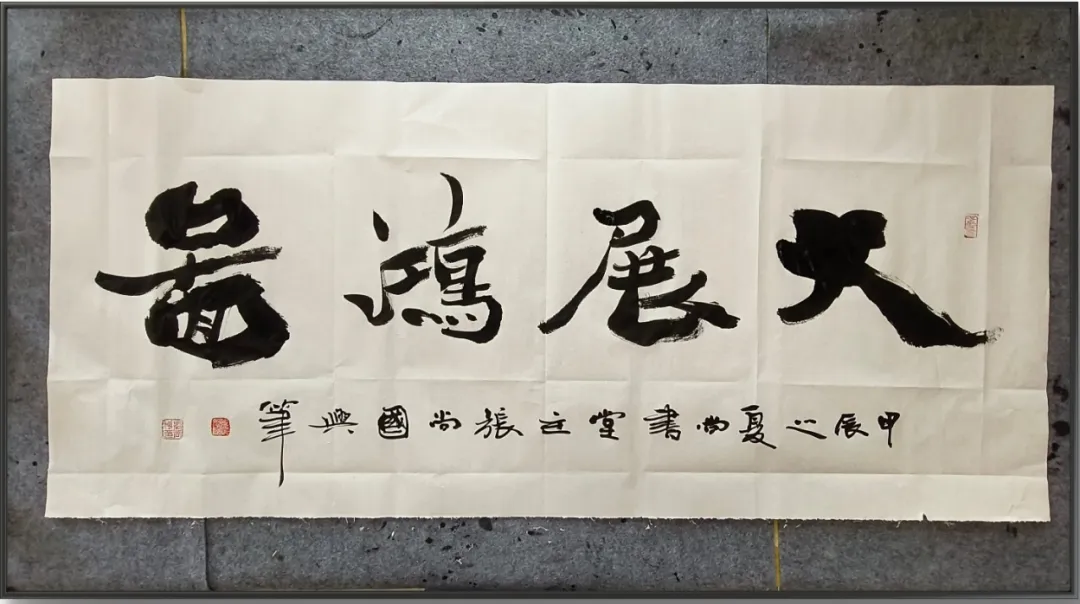 大展鴻啚
甲辰之夏尚書堂主張尚國興筆